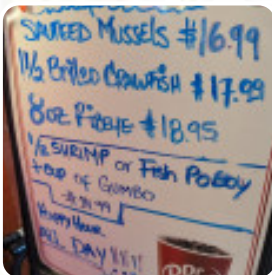 SAUTEED MUSSELS $16.99
1½ Boiled CRAWFISH $17.99
8oz RIBEYE $18.95
½ SHRIMP or Fish POBOY
+ CUP OF GUMBO
Happy Hour
ALL DAY !!!!